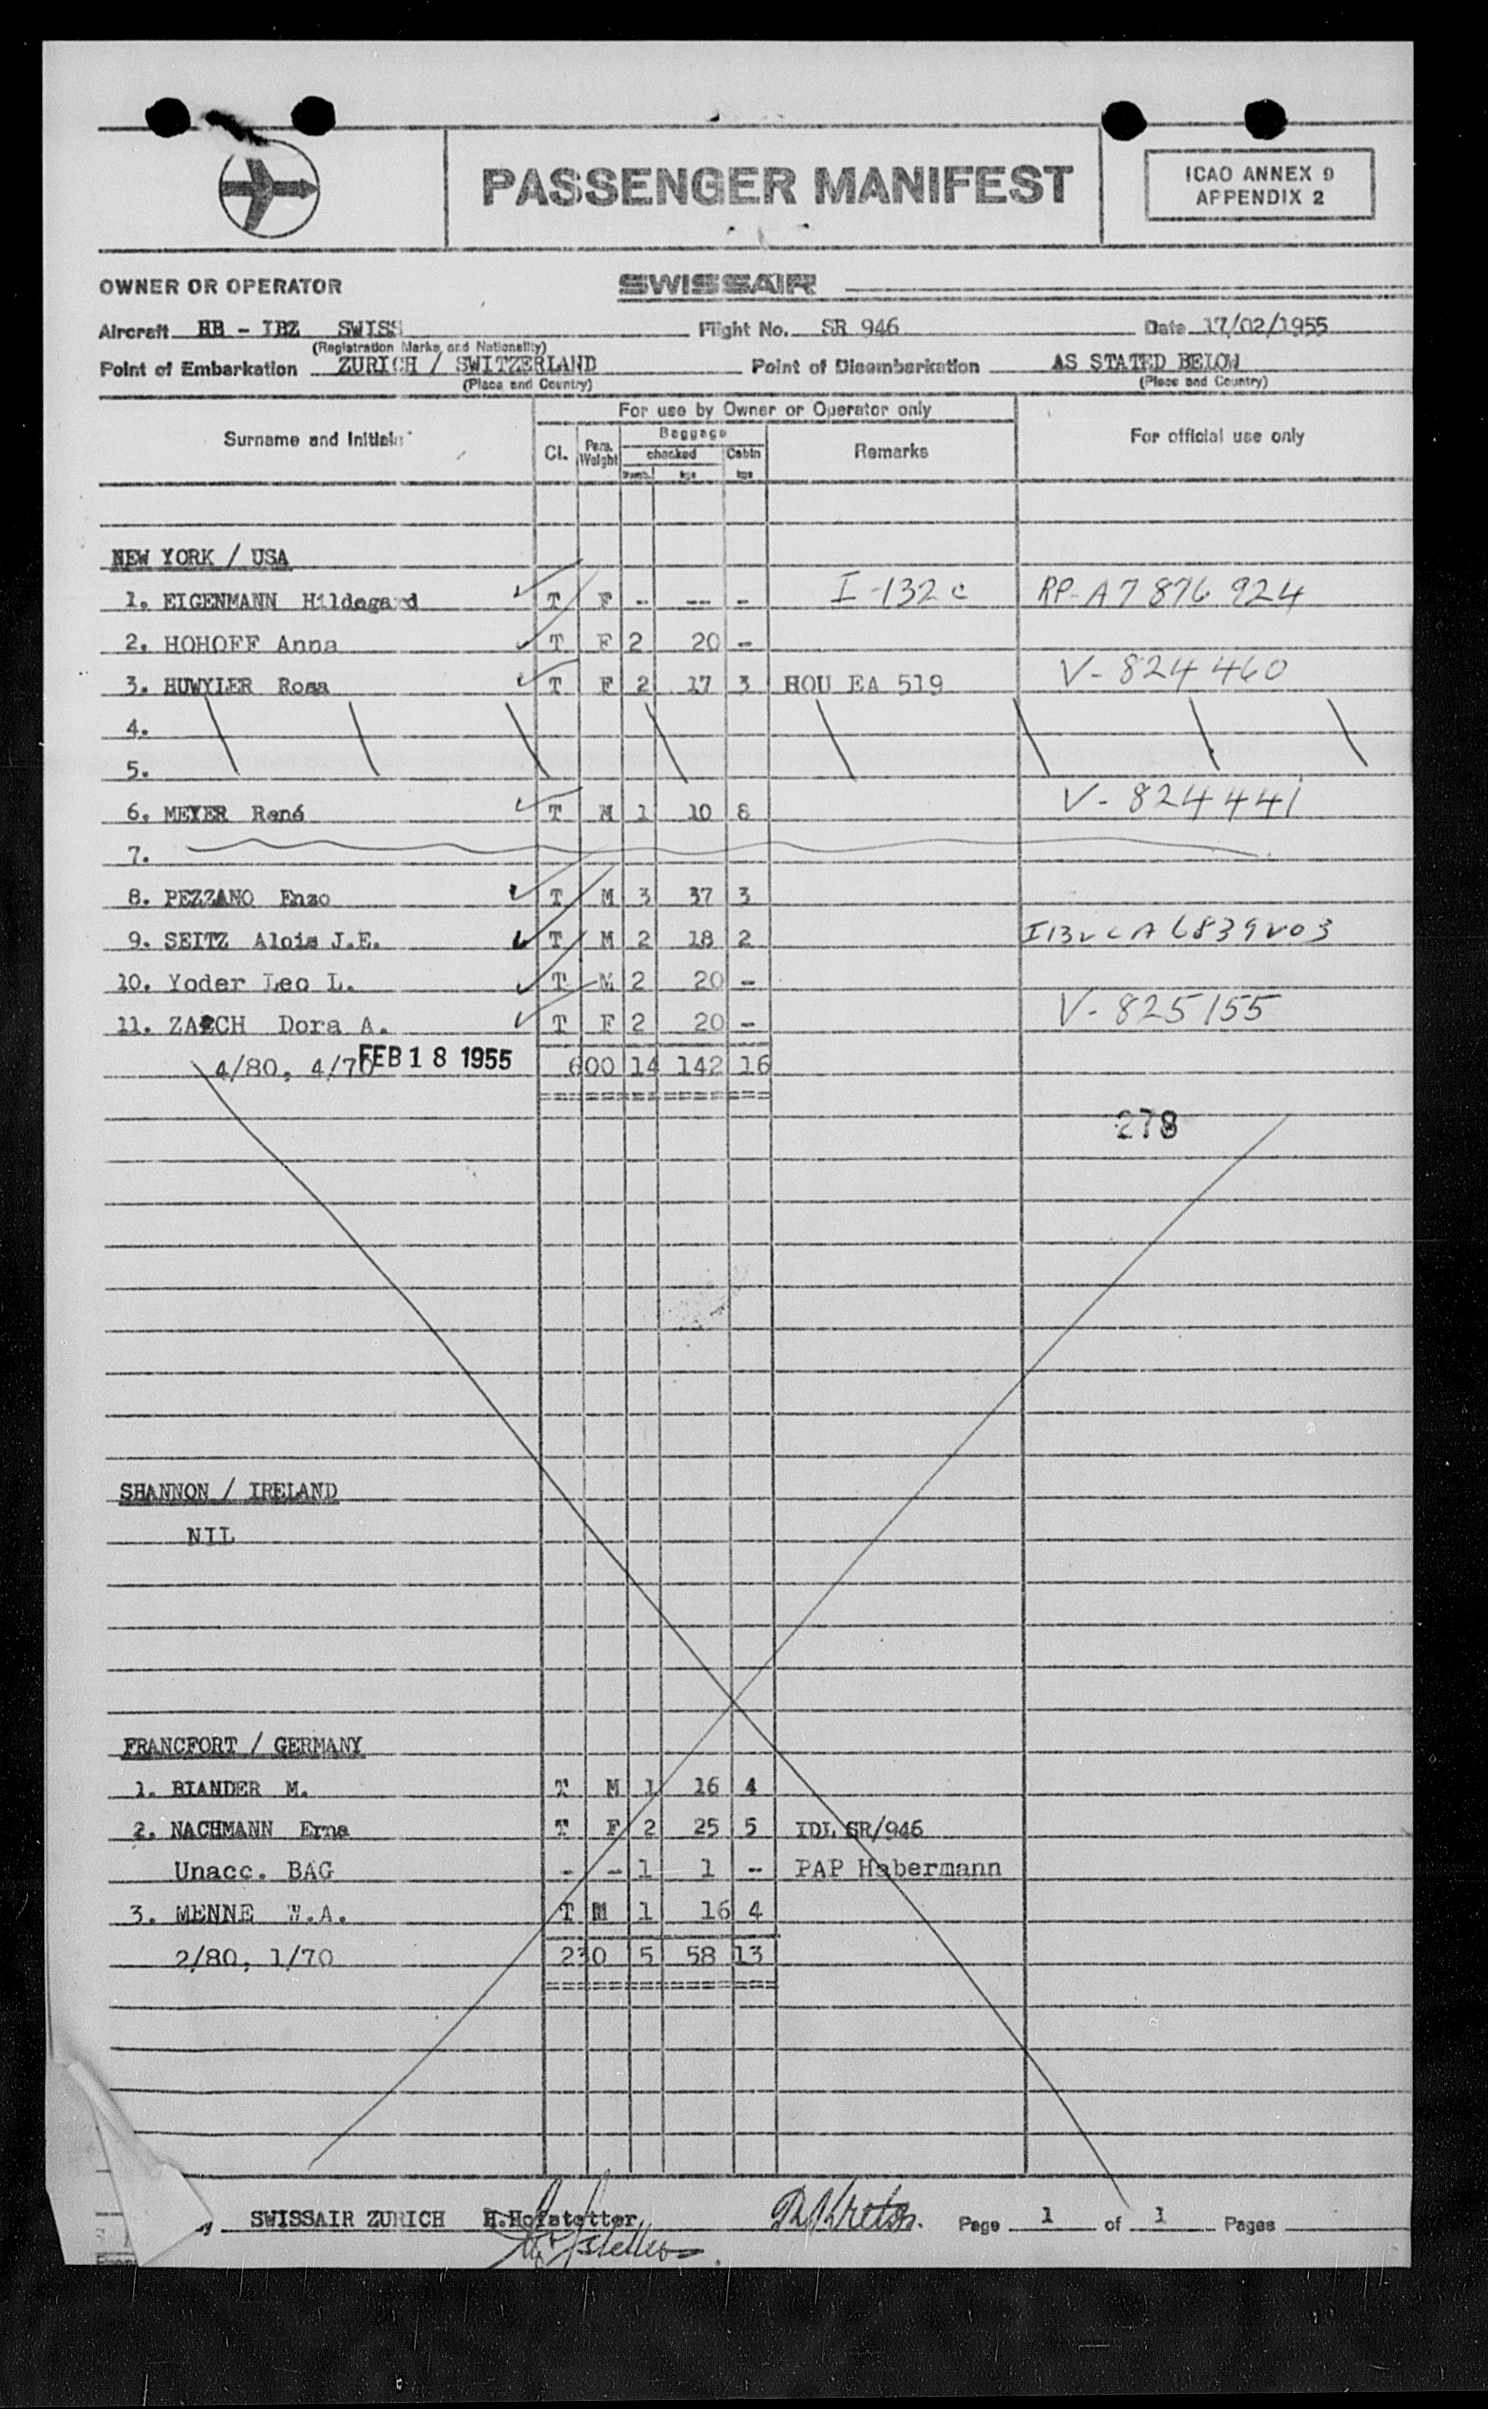 PASSENGER MANIFEST
ICAO ANNEX 9
APPENDIX 2
OWNER OR OPERATOR SWISSAIR
Aircraft HB - IBZ SWISS Flight No. SR 946 Date 17/02/1955
(Registration Marks and Nationality)
Point of Embarkation ZURICH / SWITZERLAND Point of Disembarkation AS STATED BELOW
(Place and Country) (Place and Country)
Surname and Initials For use by Owner or Operator only For official use only
Cl. Pass. Weight Baggage Remarks
checked Cabin
Numb. kgs kgs
NEW YORK / USA
1. EIGENMANN Hildegard T F - -- - I-132c RP-A7 876 924
2. HOHOFF Anna T F 2 20 -
3. HUWYLER Rosa T F 2 17 3 HOU EA 519 V-824 460
4.
5.
6. MEYER René T M 1 10 8 V-824441
7.
8. PEZZANO Enzo T M 3 37 3
9. SEITZ Alois J.E. T M 2 18 2 I132cA6839203
10. Yoder Leo L. T M 2 20 -
11. ZAECH Dora A. T F 2 20 - V-825155
4/80, 4/70 FEB 18 1955 600 14 142 16
278
SHANNON / IRELAND
NIL
FRANCFORT / GERMANY
1. BIANDER M. T M 1 16 4
2. NACHMANN Erna T F 2 25 5 IDL SR/946
Unacc. BAG - - 1 1 - PAP Habermann
3. MENNE W.A. T M 1 16 4
2/80, 1/70 230 5 58 13
SWISSAIR ZURICH H.Hofstetter Page 1 of 1 Pages